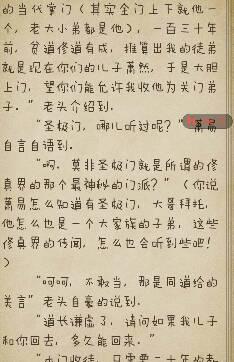 的当代掌门（其实全门上下就他一
个，老大小弟都是他），一百三十年
前，贫道修道有成，推算出我的徒弟
就是现在你们的儿子萧然，于是大胆
上门，望你们能允许我收他为关门弟
子。”老头介绍到.
“圣极门，哪儿听过呢？”萧易
自言自语到.
“啊，莫非圣极门就是所谓的修
真界的那个最神秘的门派？”（你说
萧易怎么知道有圣极门，大哥拜托，
他怎么也是一个大家族的子弟，这些
修真界的传闻，怎么也会听到些吧！
）
“呵呵，不敢当，那是同道给的
美言”老头自豪的说到.
“道长谦虚了，请问如果我儿子
和你回去，多久能回来.”